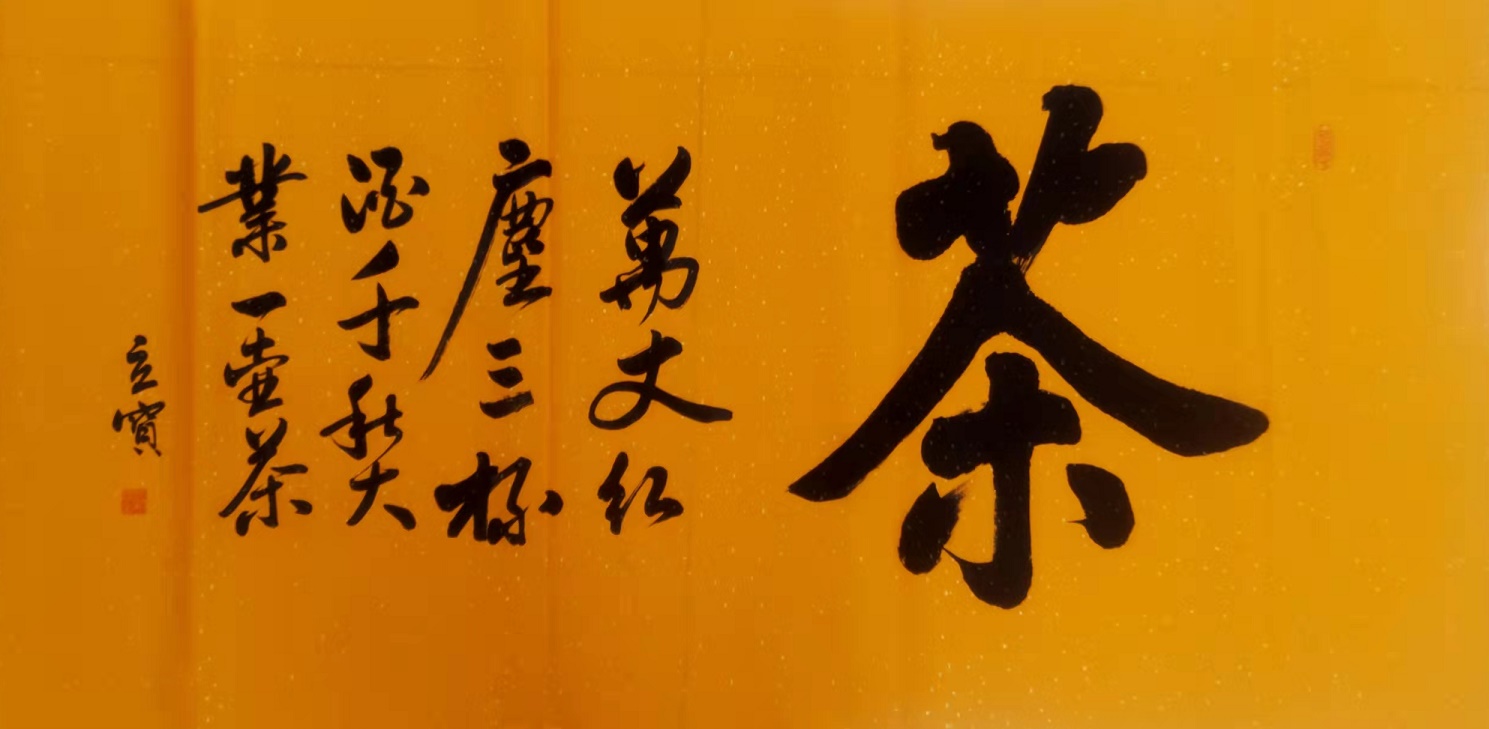 茶
萬丈紅
塵三杯
酒千秋大
業一壺茶
立寶